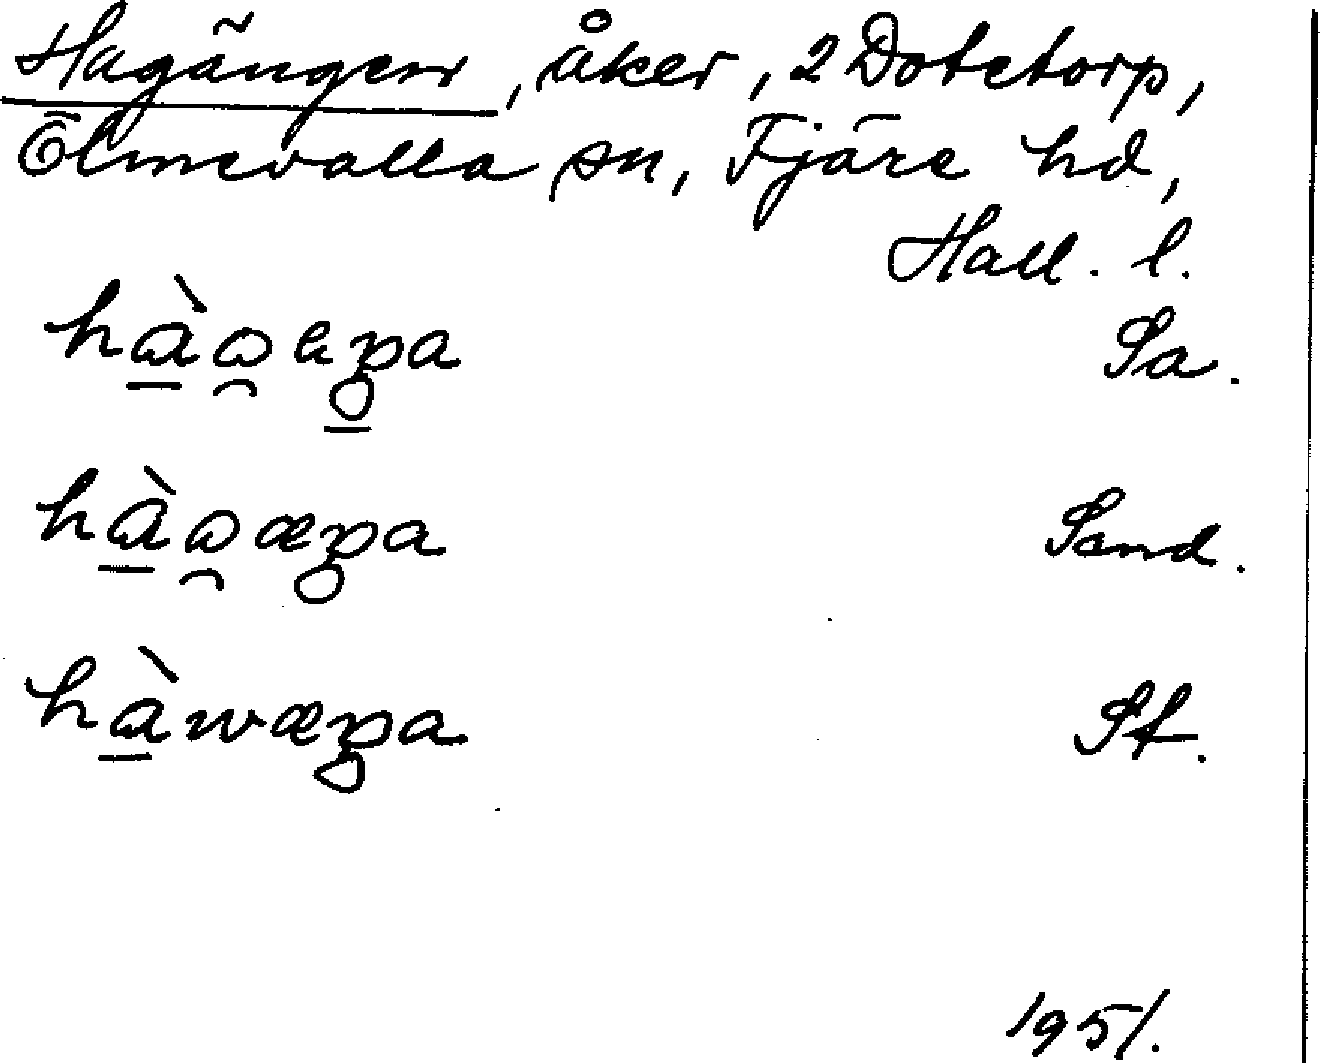 Hagängen, åker, 2 Dotetorp,
Ölmevalla sn, Fjäre hd,
Hall. l.
Sa.
Sand.
hàwæŋa St.
1951.